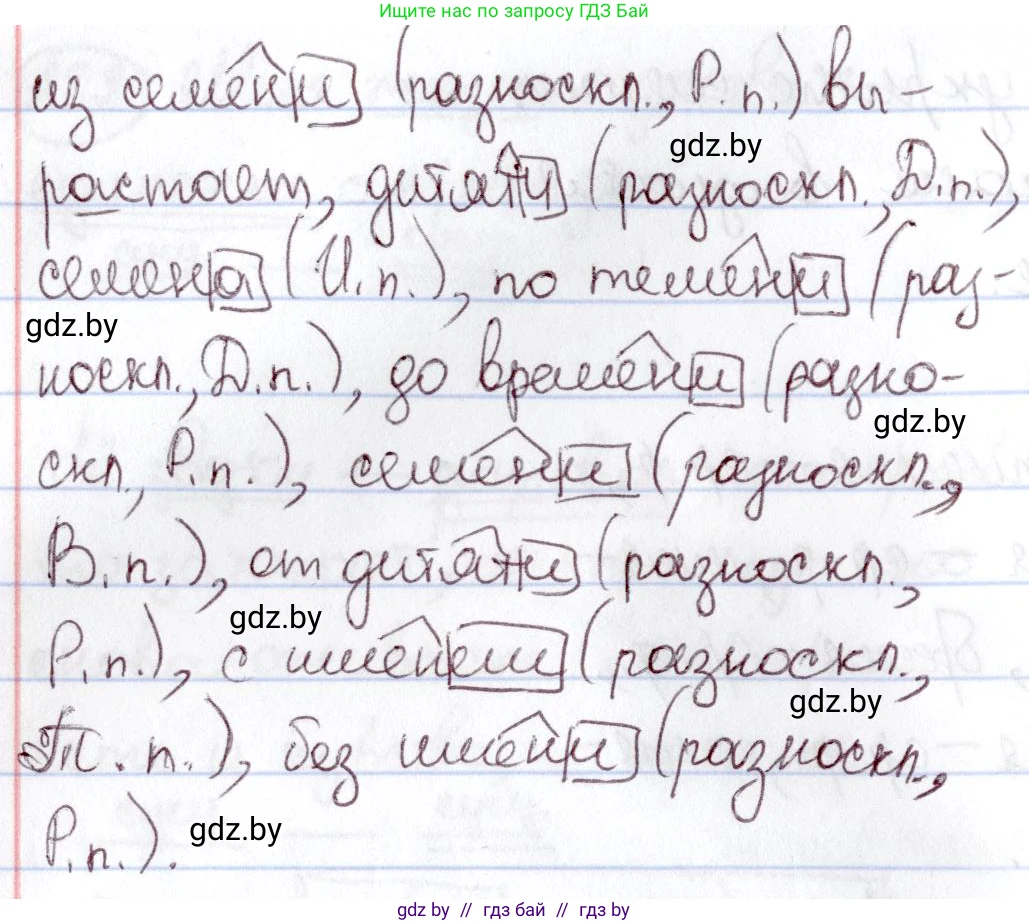 Ищите нас по запросу ГДЗ Бай
из семени (разноскл., Р. п.) вы-
gdz.by
растает, дитяти (разноскл., Д. п.),
семена (И. п.), по темени (раз-
gdz.by
носкл., Д. п.), до времени (разно-
gdz.by
скл., Р. п.), семени (разноскл.,
В. п.), от дитяти (разноскл.,
gdz.by
Р. п.), с именем (разноскл.,
gdz.by
Т. п.), без имени (разноскл.,
Р. п.).
gdz.by
gdz by // гдз бай // gdz by